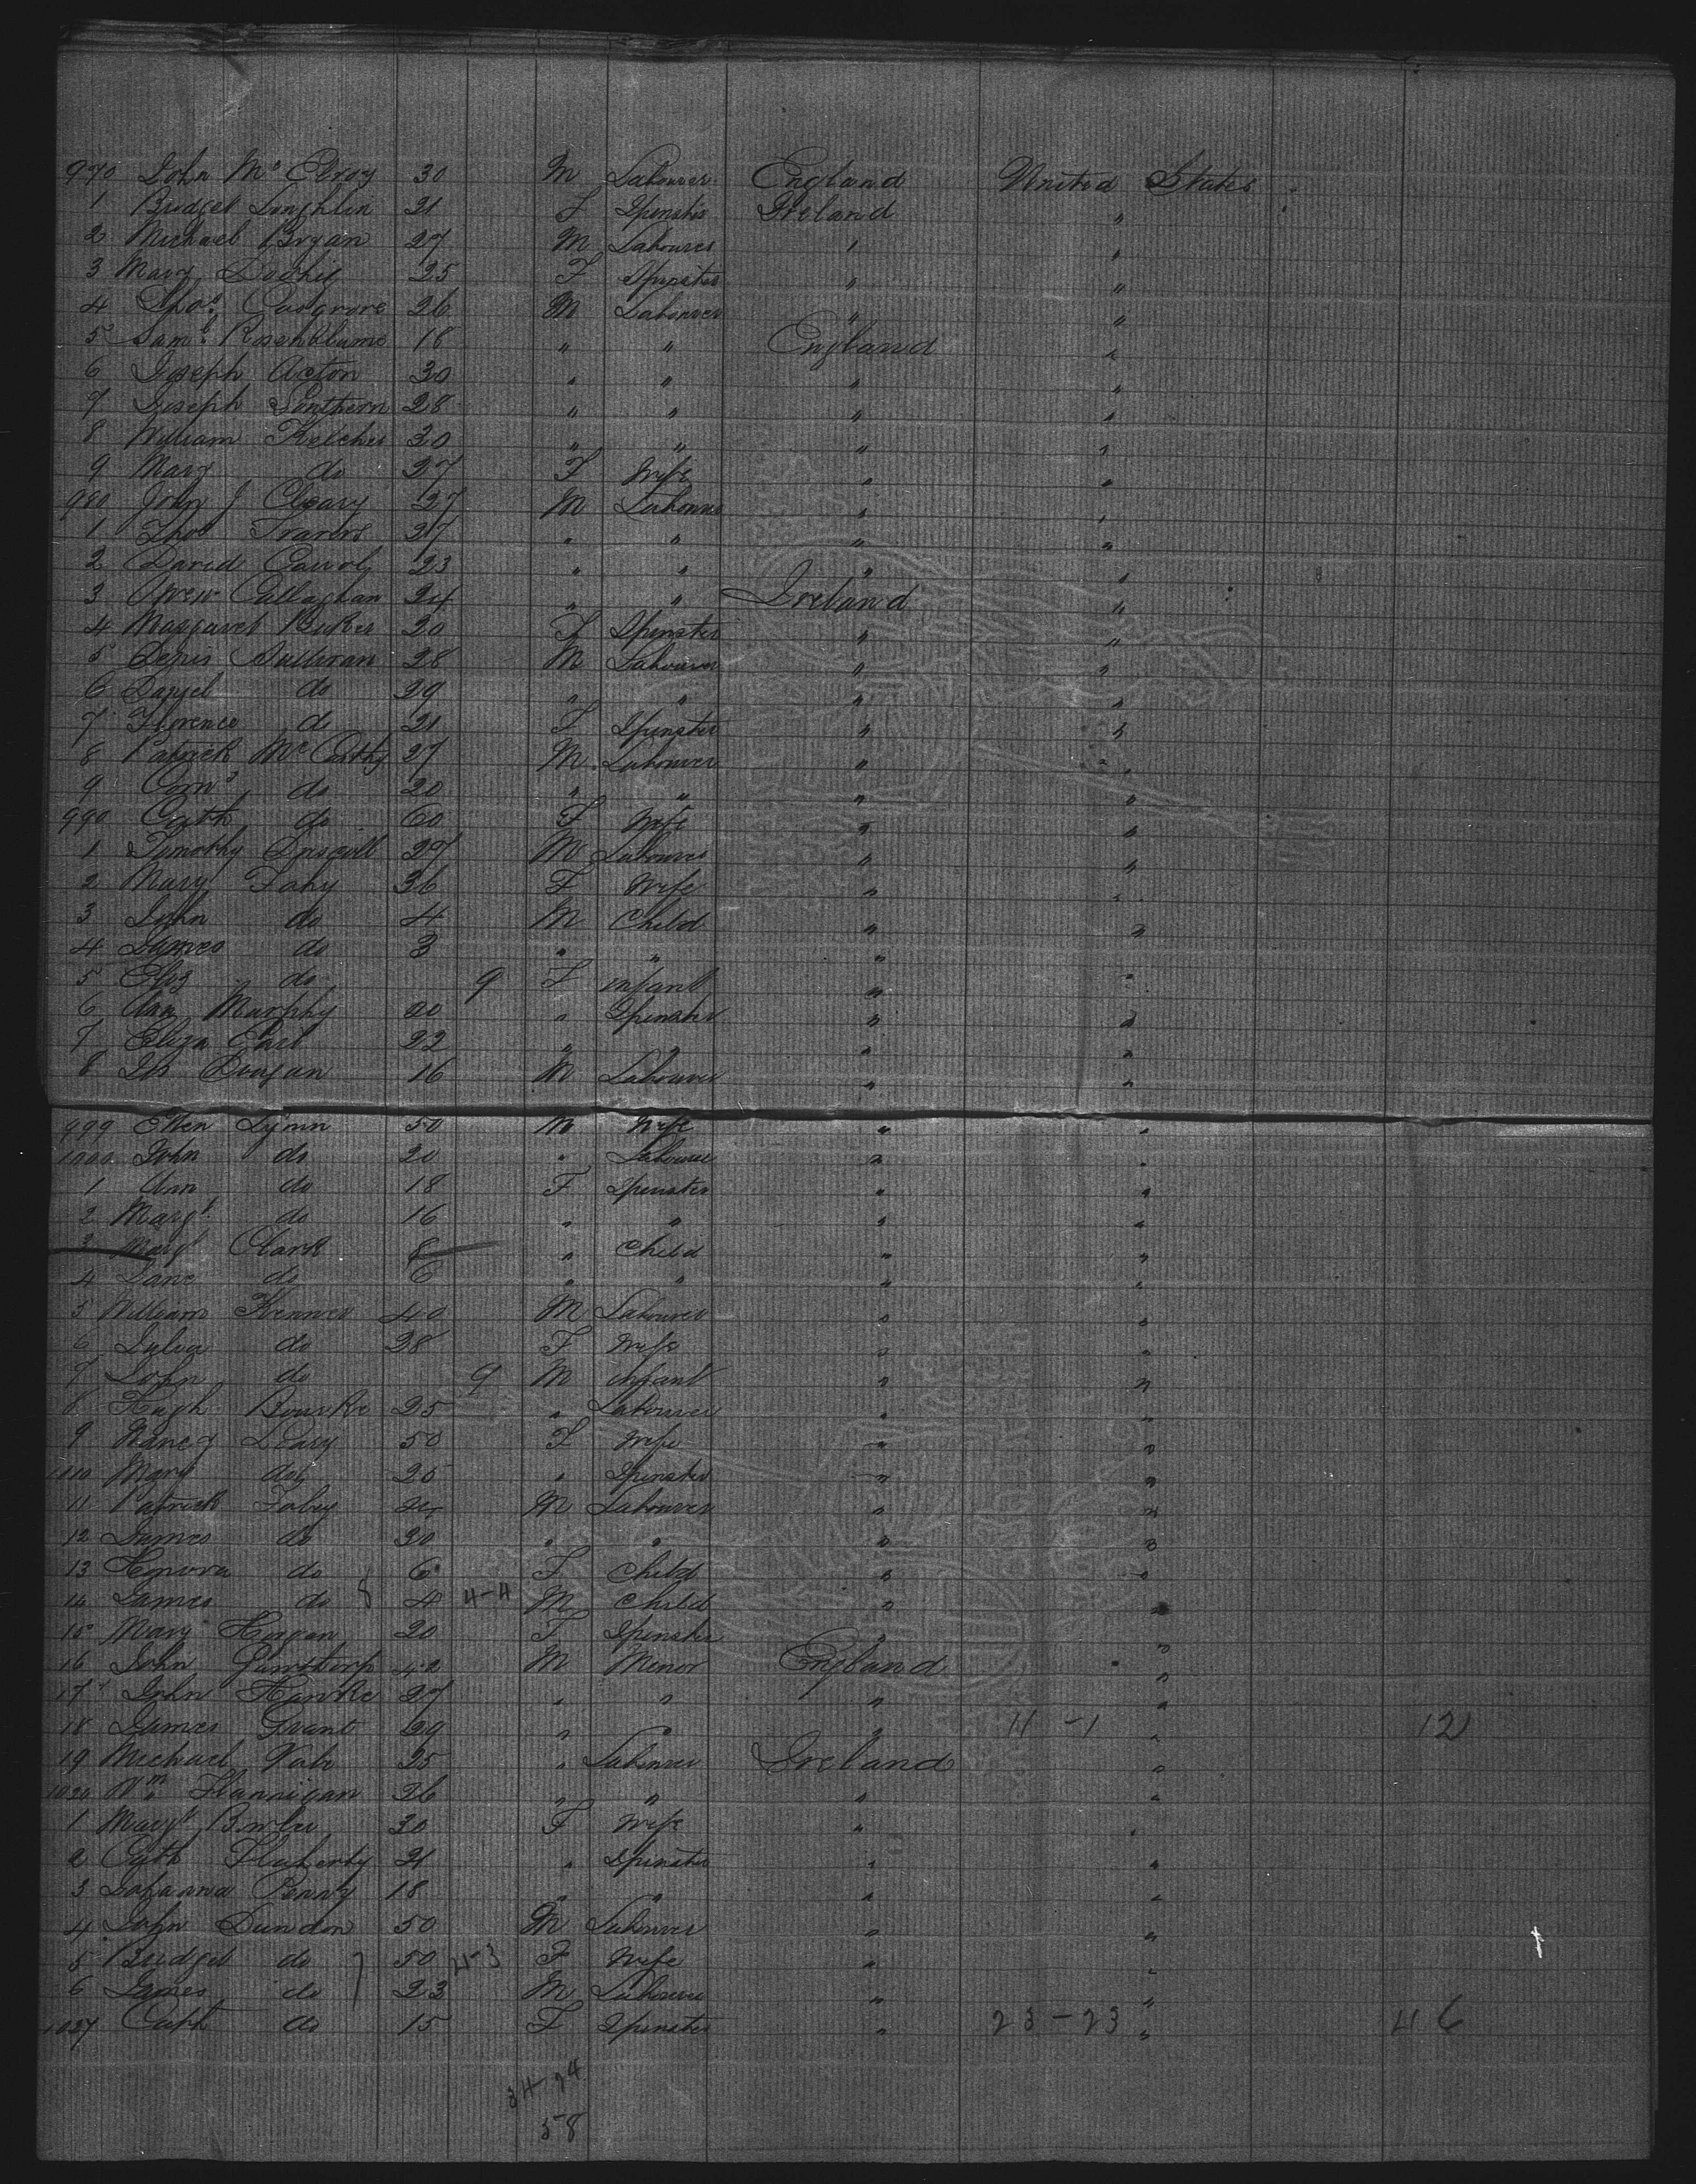 970 John Mc Elroy 30 M Labourer England United States
1 Bridget Loughlin 21 F Spinster Ireland "
2 Michael Bryan 27 M Labourer " "
3 Mary 25 F Spinster " "
4 Thos. Cosgrove 26 M Labourer " "
5 Saml. Rosenblume 18 " " England "
6 Joseph Acton 30 " " " "
7 Joseph Southern 28 " " " "
8 William Kelcher 30 " " " "
9 Mary do 27 F Wife " "
980 John J Cleary 27 M Labourer " "
1 Thos Travers 27 " " " "
2 David 23 " " " "
3 Callaghan 24 " " Ireland "
4 Margaret 20 F Spinster " "
5 Denis Sullivan 28 M Labourer " "
6 Daniel do 29 " " " "
7 Florence do 21 F Spinster " "
8 Patrick Mc Carthy 27 M Labourer " "
9 Corns do 20 " " " "
990 Cath do 60 F Wife " "
1 Timothy Driscoll 27 M Labourer " "
2 Mary Fahy 36 F Wife " "
3 John do 4 M Child " "
4 James do 3 " " " "
5 Eliz do 9 F infant " "
6 Ann Murphy 20 " Spinster " "
7 Eliza Earl 22 " " " "
8 Jas 16 M Labourer " "
999 Ellen Lynn 50 M Wife " "
1000 John do 20 " Labourer " "
1 Ann do 18 F Spinster " "
2 Margt. do 16 " " " "
3 Margt Clark 8 " Child " "
4 Jane do 6 " " " "
5 William 40 M Labourer " "
6 Julia do 38 F Wife " "
7 John do 9 M infant " "
8 Hugh Bourke 25 " Labourer " "
9 Nancy Leary 50 F Wife " "
1010 Mary do 25 " Spinster " "
11 Patrick M Labourer " "
12 James do 30 " " " "
13 Honora do 6 F Child " "
14 James do 4 4-4 M Child " "
15 Mary Horgan 20 F Spinster " "
16 John 42 M Menor England "
17 John 27 " " " "
18 James Grant 29 " " " 11 - 1 " 12
19 Michael 25 " Labourer Ireland "
1020 Wm. Flannigan 26 " " " "
1 Margt 30 F Wife " "
2 Cath Flaherty 21 " Spinster " "
3 Johanna Penny 18 " " " "
4 John Dundon 50 M Labourer " "
5 Bridget do 50 4-3 F Wife " "
6 James do 23 M Labourer " "
1027 Cath do 15 F Spinster " 23 - 23 " 46
34-24
58